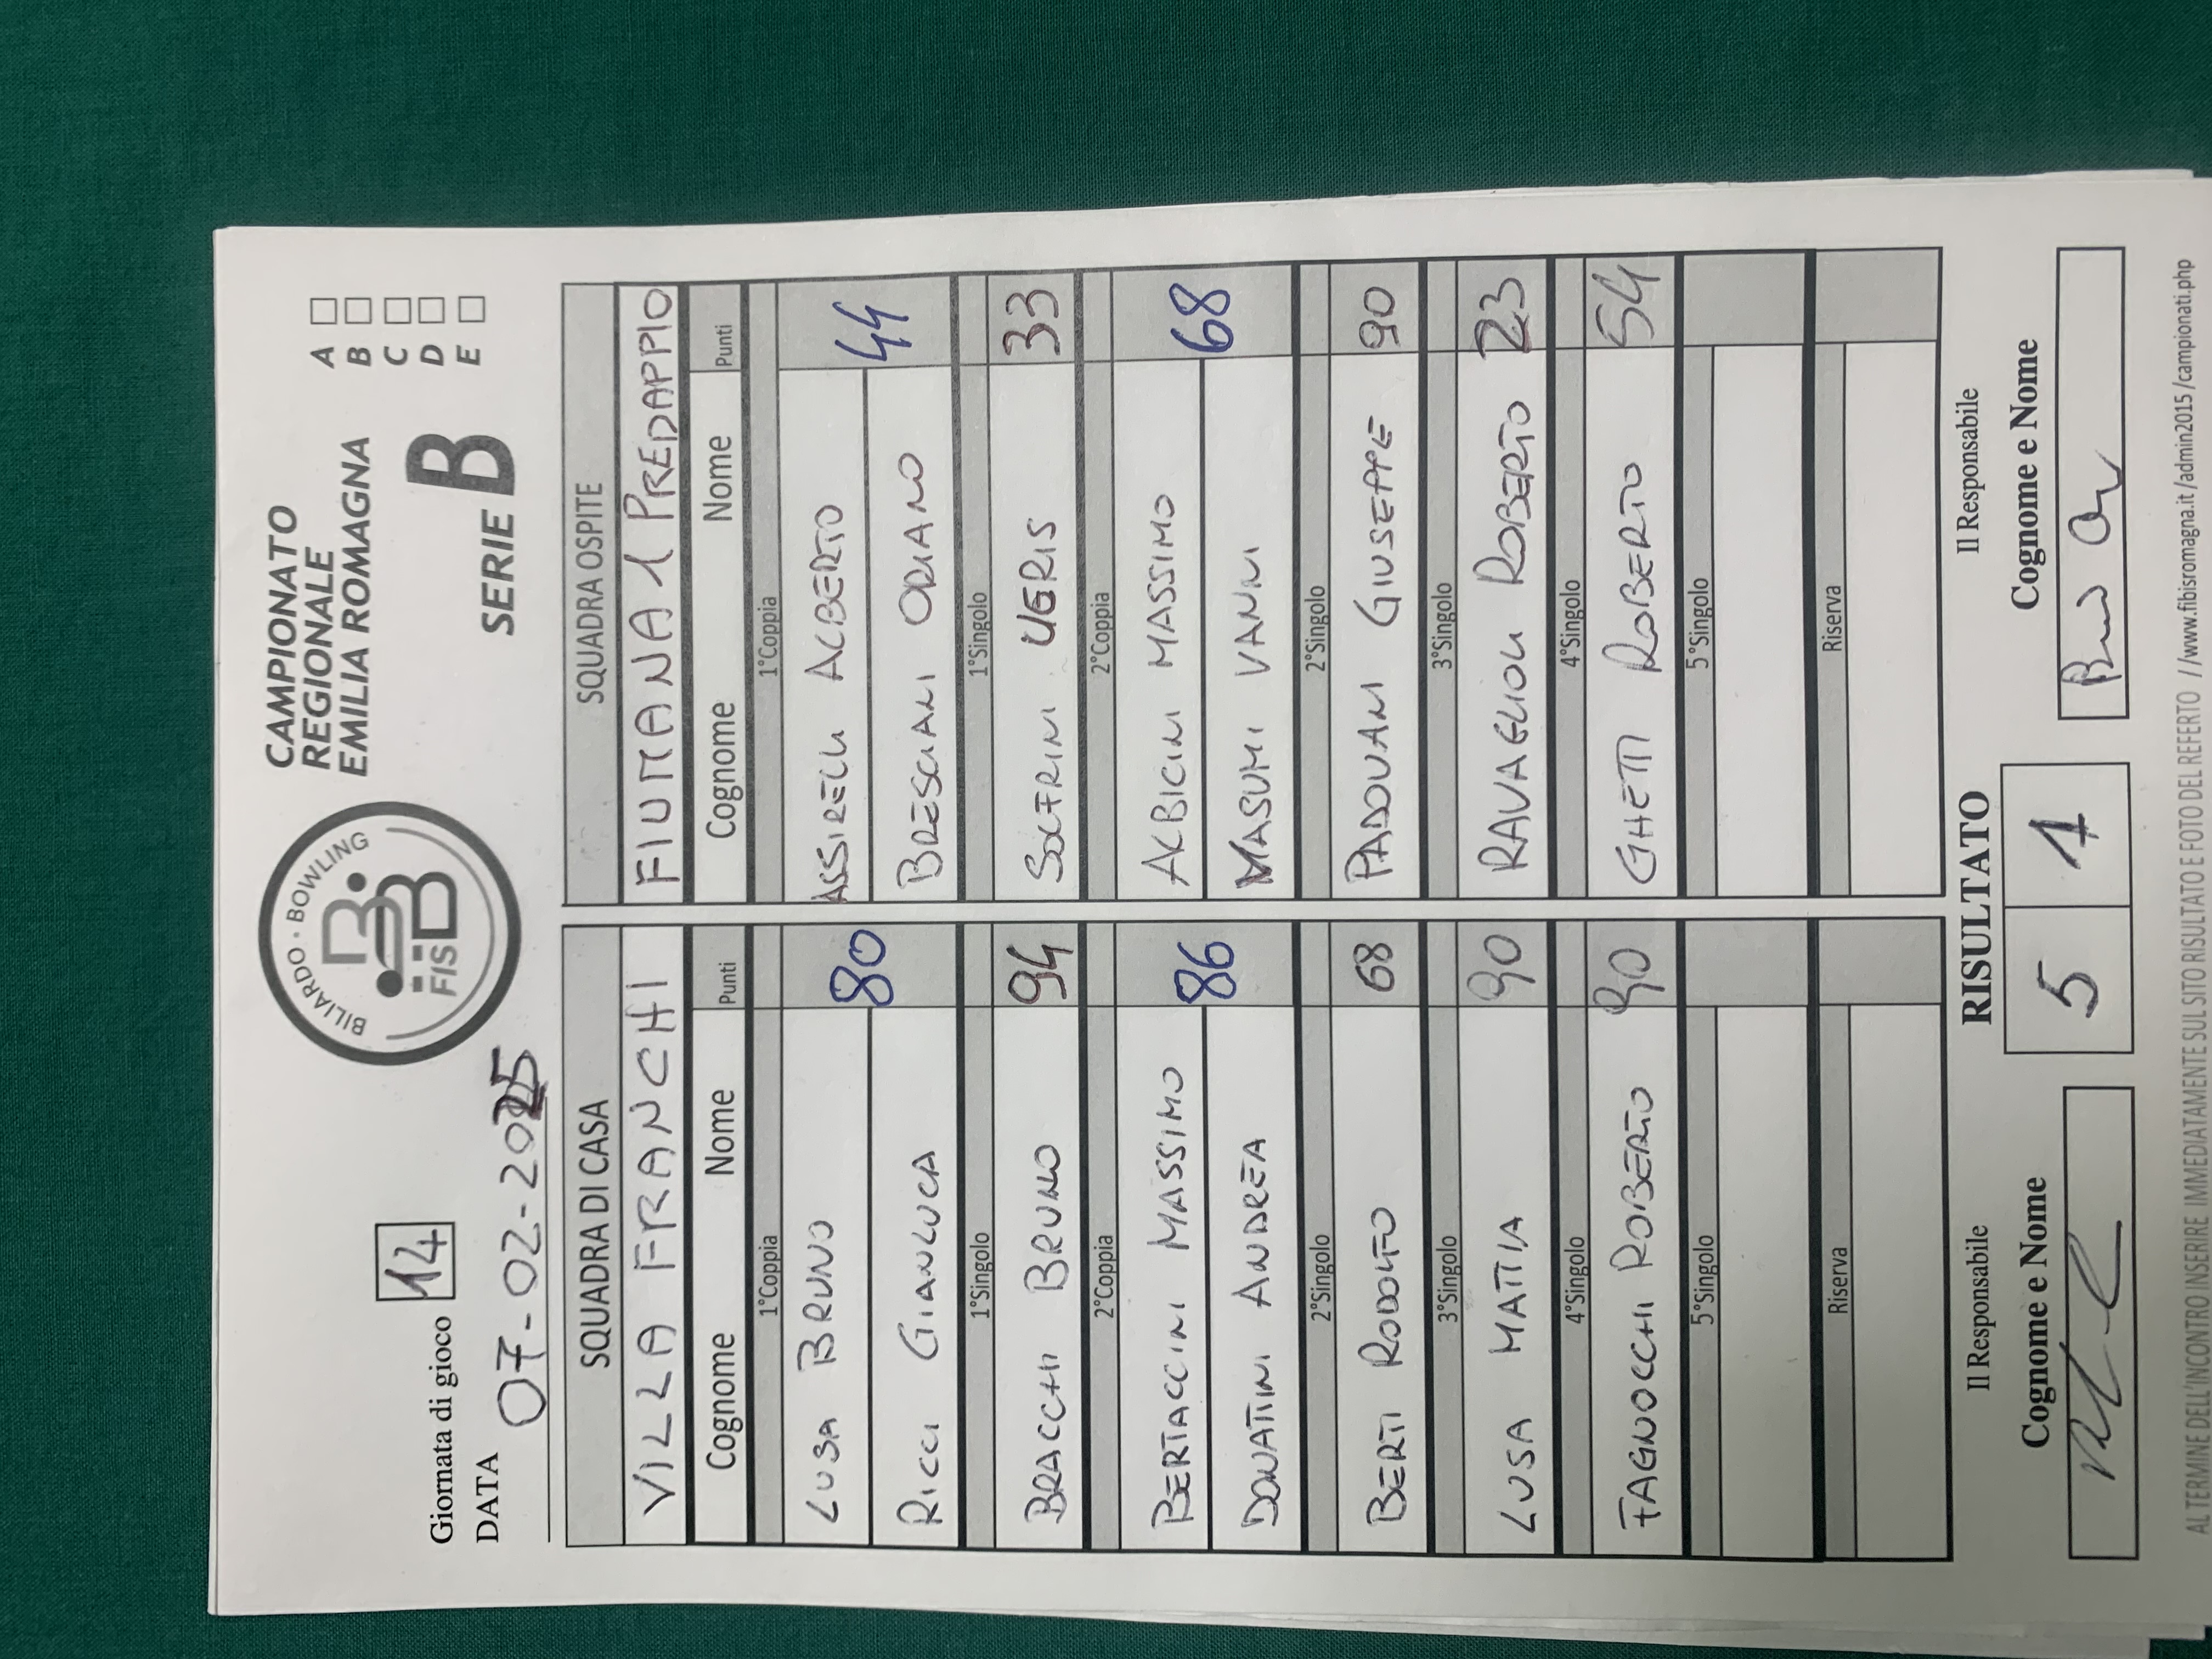 Giornata di gioco 14
DATA 07-02-2025
BILIARDO · BOWLING
FIS
CAMPIONATO
REGIONALE
EMILIA ROMAGNA
SERIE B
A
B
C
D
E
SQUADRA DI CASA
VILLA FRANCHI
Cognome Nome Punti
1°Coppia
LUSA BRUNO
80
RICCI GIANLUCA
1°Singolo
BRACCHI BRUNO 94
2°Coppia
BERTACCINI MASSIMO
86
DONATINI ANDREA
2°Singolo
BERTI RODOLFO 68
3°Singolo
LUSA MATTIA 90
4°Singolo
FAGNOCCHI ROBERTO 90
5°Singolo
Riserva
SQUADRA OSPITE
FIUMANA 1 PREDAPPIO
Cognome Nome Punti
1°Coppia
ASSIRELLI ALBERTO
44
BRESCIANI ORIANO
1°Singolo
SOLFRINI UERIS 33
2°Coppia
ALBICINI MASSIMO
68
MASUMI VANNI
2°Singolo
PADOVANI GIUSEPPE 90
3°Singolo
RAVAGLIOLI ROBERTO 23
4°Singolo
GHETTI ROBERTO 54
5°Singolo
Riserva
Il Responsabile
Cognome e Nome
RISULTATO
5 1
Il Responsabile
Cognome e Nome
AL TERMINE DELL'INCONTRO INSERIRE IMMEDIATAMENTE SUL SITO RISULTATO E FOTO DEL REFERTO //www.fibisromagna.it/admin2015/campionati.php